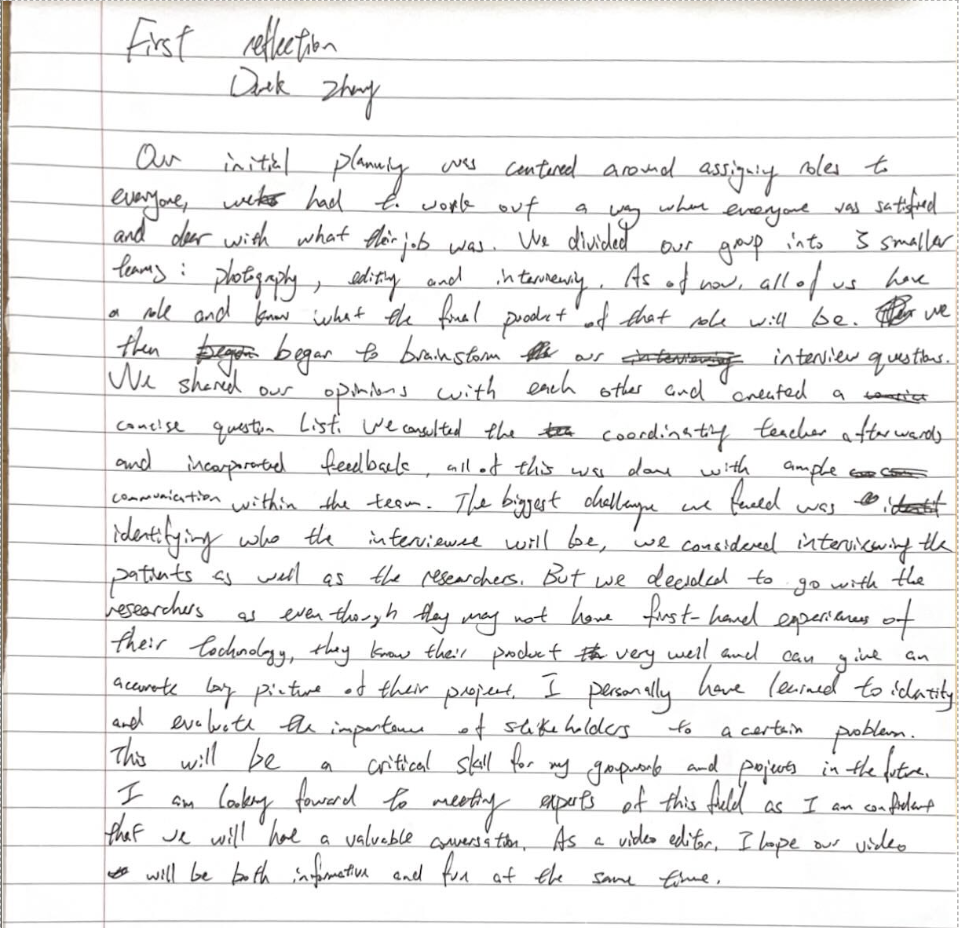 First reflection
Derek Zhang
Our initial planning was centered around assigning roles to
everyone, we had to work out a way where everyone was satisfied
and clear with what their job was. We divided our group into 3 smaller
teams: photography, editing and interviewing. As of now, all of us have
a role and know what the final product of that role will be. we
then began to brainstorm our interview questions.
We shared our opinions with each other and created a
concise question list. We consulted the coordinating teacher afterwards
and incorporated feedback, all of this was done with ample
communication within the team. The biggest challenge we faced was
identifying who the interviewee will be, we considered interviewing the
patients as well as the researchers. But we decided to go with the
researchers as even though they may not have first-hand experiences of
their technology, they know their product very well and can give an
accurate big picture of their project. I personally have learned to identify
and evaluate the importance of stakeholders to a certain problem.
This will be a critical skill for my groupwork and projects in the future.
I am looking foward to meeting experts of this field as I am confident
that we will have a valuable conversation. As a video editor, I hope our video
will be both informative and fun at the same time.